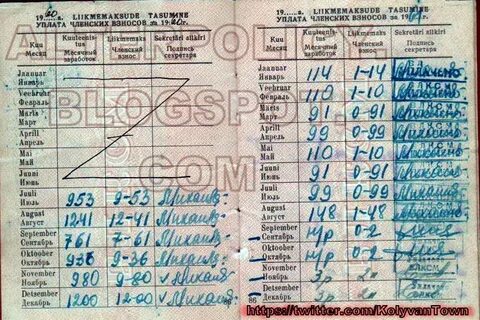 19 60 a. LIIKMEMAKSUDE TASUMINE
УПЛАТА ЧЛЕНСКИХ ВЗНОСОВ за 1960г.
Kuu Месяц Kuuteenistus Месячный заработок Liikmemaks Членский взнос Sekretäri allkiri Подпись секретаря
Jaanuar Январь
Veebruar Февраль
Märts Март
Aprill Апрель
Mai Май
Juuni Июнь
Juuli Июль 953 9-53
August Август 1241 12-41
September Сентябрь 761 7-61
Oktoober Октябрь 936 9-36
November Ноябрь 980 9-80
Detsember Декабрь 1200 12-00
19 a. LIIKMEMAKSUDE TASUMINE
УПЛАТА ЧЛЕНСКИХ ВЗНОСОВ за 19 г.
Kuu Месяц Kuuteenistus Месячный заработок Liikmemaks Членский взнос Sekretäri allkiri Подпись секретаря
Jaanuar Январь 114 1-14
Veebruar Февраль 110 1-10
Märts Март 91 0-91
Aprill Апрель 99 0-99
Mai Май 110 1-10
Juuni Июнь 91 0-91
Juuli Июль 99 0-99
August Август 148 1-48
September Сентябрь н/р 0-2
Oktoober Октябрь н/р 0-2
November Ноябрь
Detsember Декабрь
86
BLOGSPOT
.COM
https://twitter.com/KolyvanTown